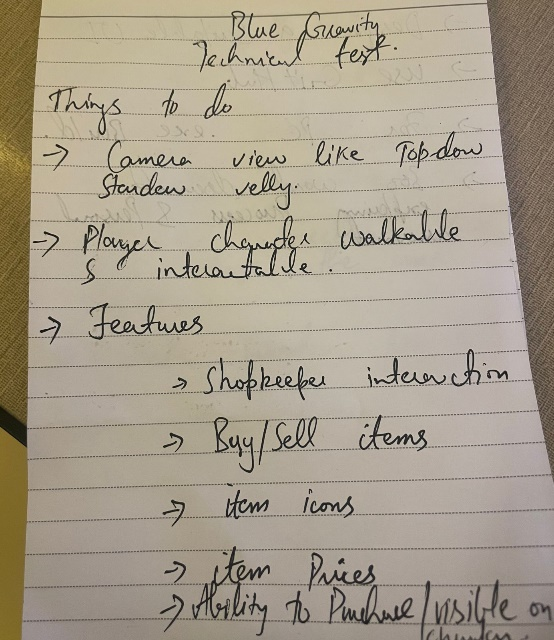 Blue Gravity
Technical test.
Things to do
→ Camera view like Topdow
Stardew velly.
→ Player character walkable
& interactable.
→ Features
→ Shopkeeper interaction
→ Buy/Sell items
→ item icons
→ item Prices
→ Ability to Purchase/visible on